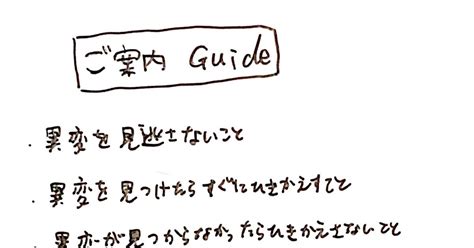 ご案内 Guide
・異変を見逃さないこと
・異変を見つけたらすぐにひきかえすこと
・異変が見つからなかったらひきかえさないこと